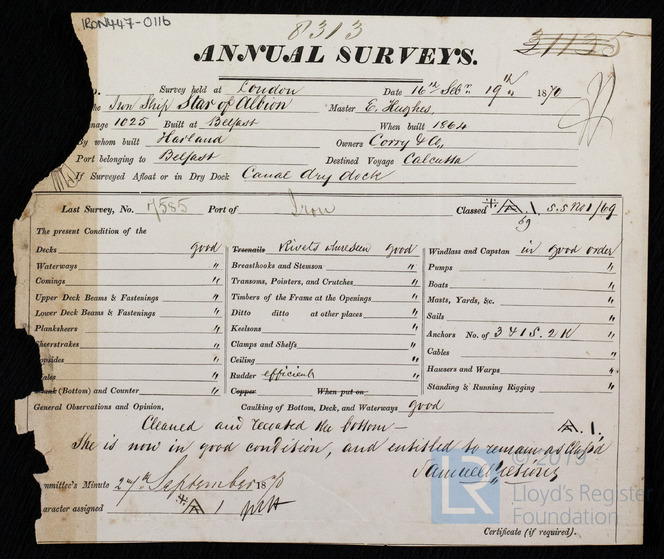 IRON447-0116
8313
31135
ANNUAL SURVEYS.
o. Survey held at London Date 16th Sebr. 19th 1870
he Iron Ship Star of Albion Master E. Hughes
nnage 1025 Built at Belfast When built 1864
By whom built Harland Owners Corry & Co,
Port belonging to Belfast Destined Voyage Calcutta
If Surveyed Afloat or in Dry Dock Canal dry dock
Last Survey, No. 7585 Port of Iron Classed A 1. S.S No 1/69
69
The present Condition of the
Decks good Treenails Rivets where seen good Windlass and Capstan in good order
Waterways " Breasthooks and Stemson " Pumps "
Comings " Transons, Pointers, and Crutches " Boats "
Upper Deck Beams & Fastenings " Timbers of the Frame at the Openings " Masts, Yards, &c. "
Lower Deck Beams & Fastenings " Ditto ditto at other places " Sails "
Planksheers " Keelsons " Anchors No. of 3 4 1 S. 2 K "
Sheerstrakes " Clamps and Shelfs " Cables "
opsides " Ceiling " Hausers and Warps "
ales " Rudder efficient Standing & Running Rigging "
Plank (Bottom) and Counter " Copper When put on
General Observations and Opinion, Caulking of Bottom, Deck, and Waterways good
Cleaned and recoated the bottom — A. 1.
She is now in good condition, and entitled to remain as Class'd
Samuel
mmittee's Minute 27th September 1870
aracter assigned A 1
© 2019
LR
Lloyd's Register
Foundation
Certificate (if required).